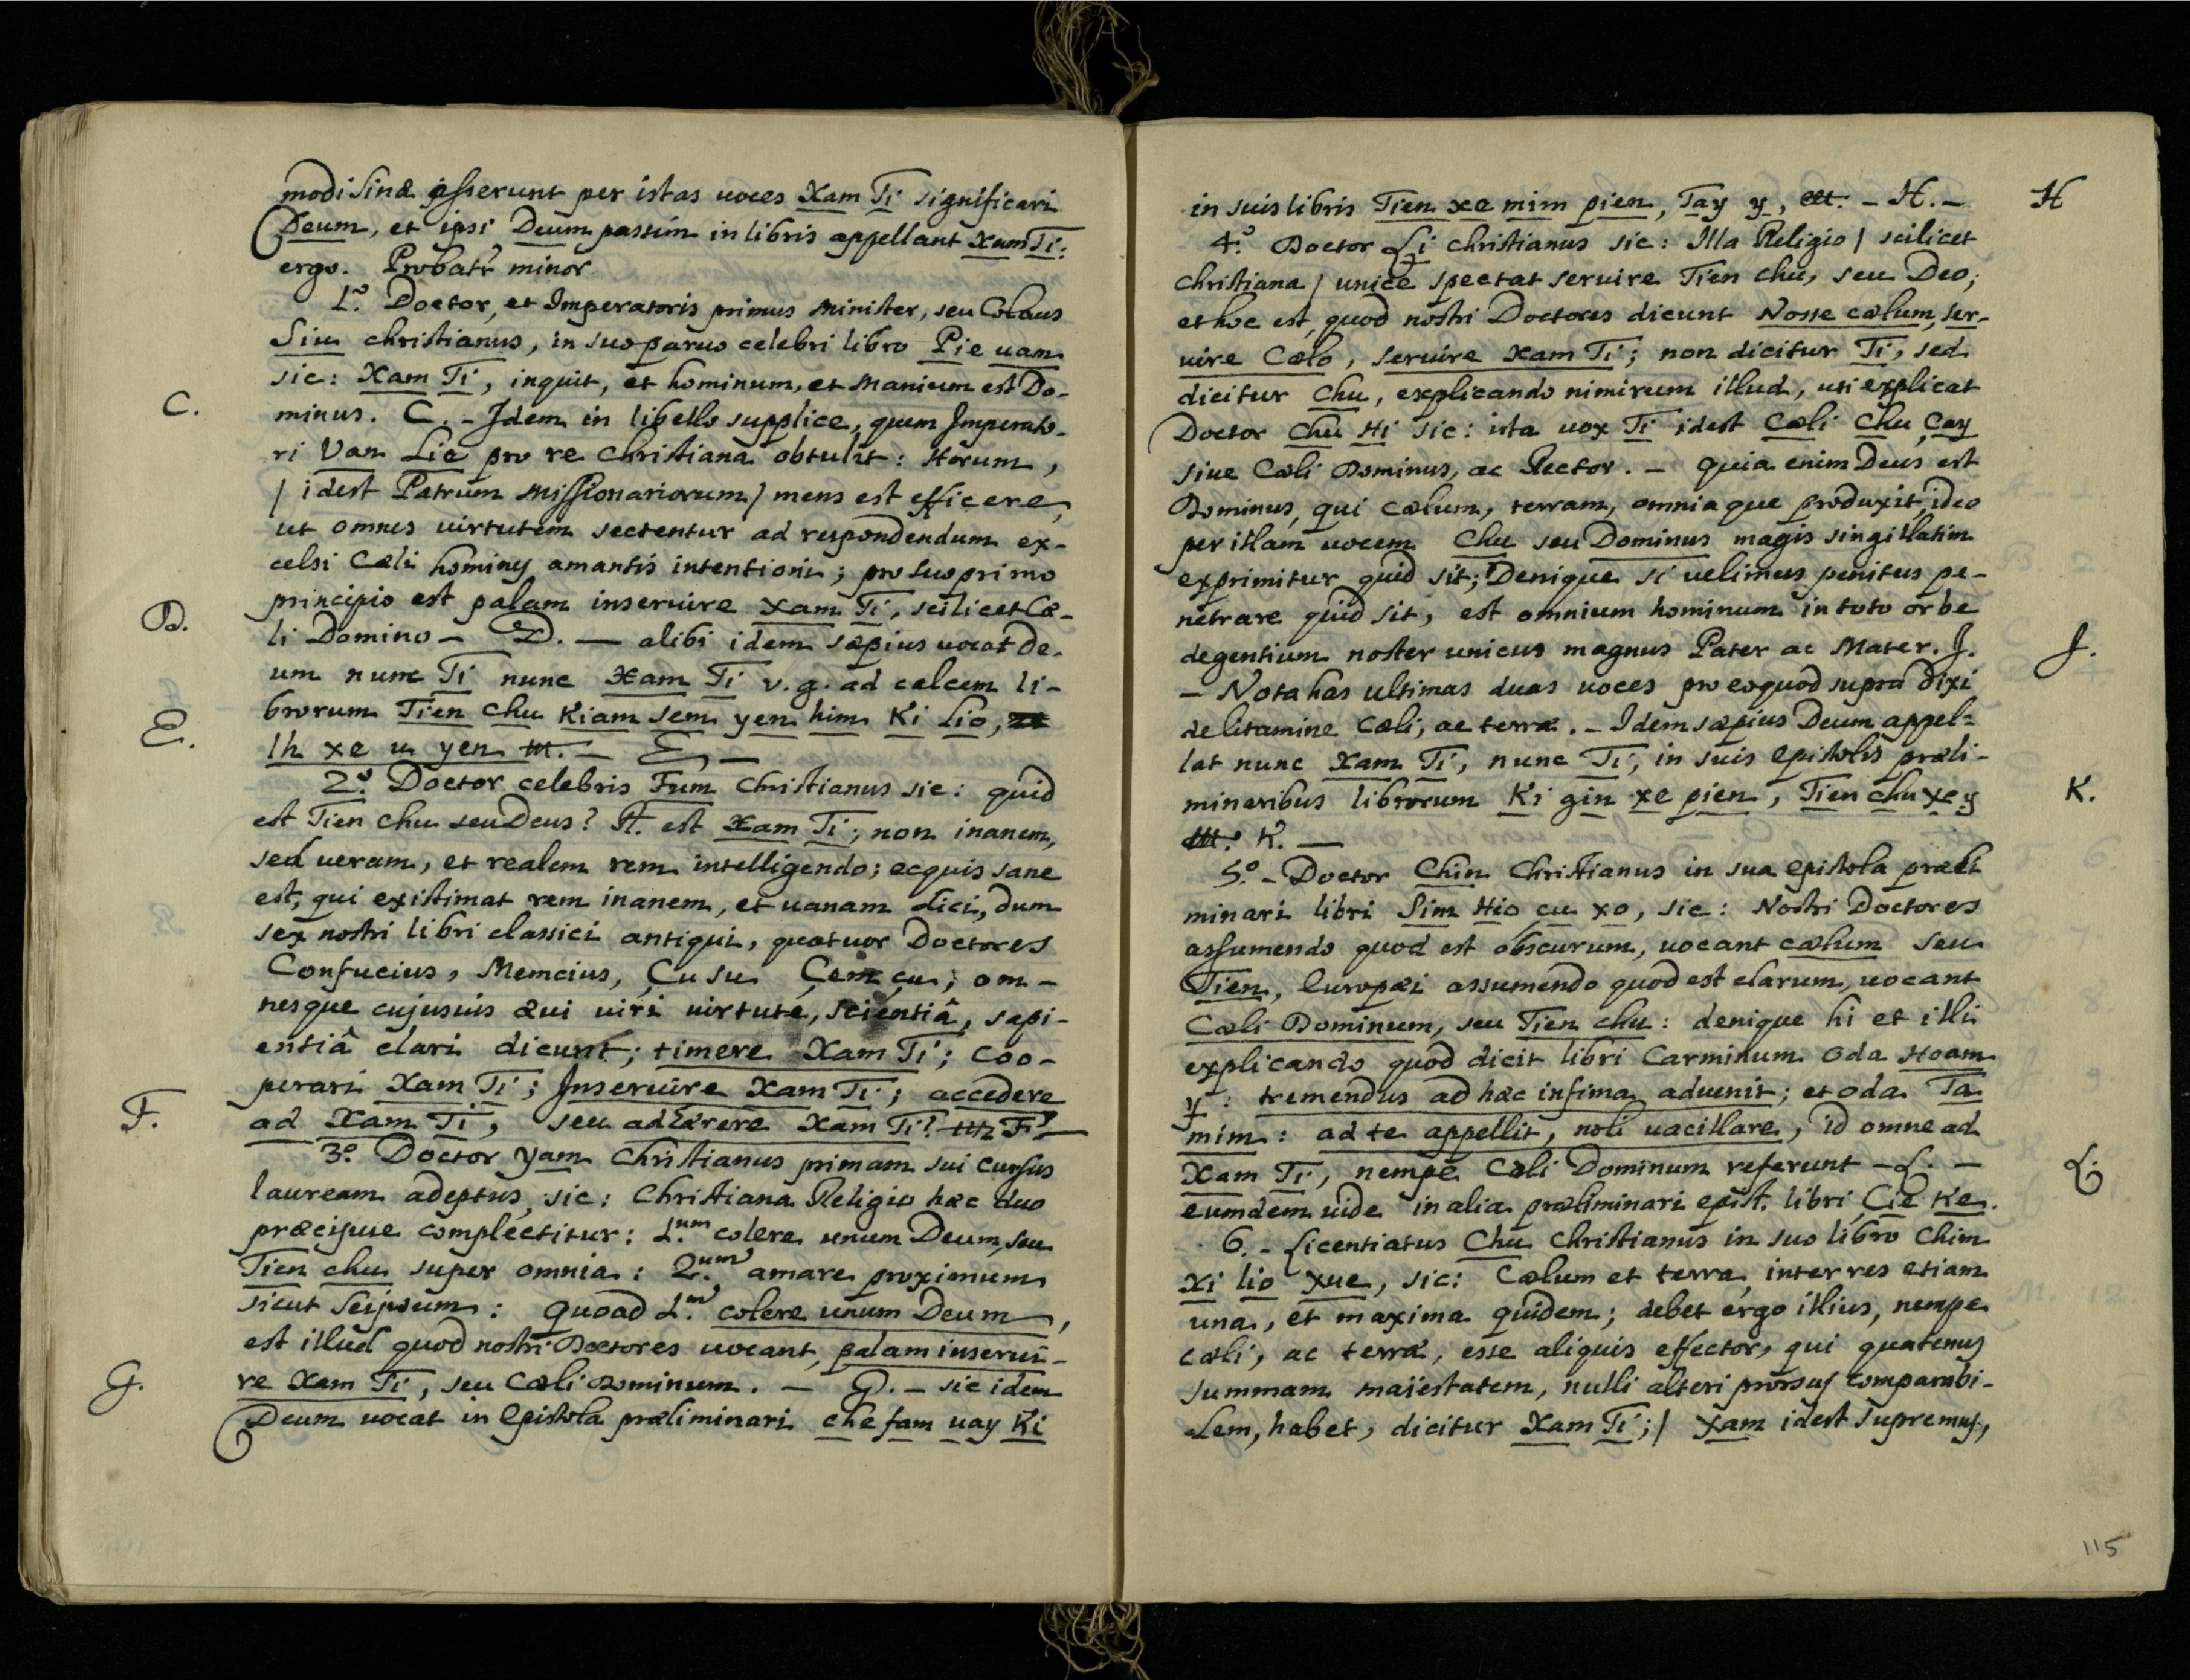 modi Sinæ asserunt per istas uoces Xam Ti significari
Deum, et ipsi Deum passim in libris appellant Xam Ti:
ergo. Probatr minor.
1.º Doctor, et Imperatoris primus Minister, seu Colaus
Siu christianus, in suo paruo celebri libro Pie uam
sic: Xam Ti, inquit, et hominum, et Manium est Do-
C.
minus. C. - Idem in libello supplice, quem Imperato-
ri Van Lie pro re Christianâ obtulit: Horum,
/ idest Patrum Missionariorum / mens est efficere,
ut omnes uirtutem sectentur ad respondendum ex-
celsi Cæli hominy amantis intentioni; pro suo primo
principio est palam inseruire Xam Ti, scilicet Cæ-
D.
li Domino - D. — alibi idem sæpius uocat De-
um nunc Ti nunc Xam Ti v.g. ad calcem li-
brorum Tien chu Kiam sem yen him Ki lio,
E.
lh xe u yen - E, —
2.º Doctor celebris Fum Christianus sic: quid
est Tien chu seu Deus? R. est Xam Ti; non inanem,
sed ueram, et realem rem intelligendo; ecquis sane
est, qui existimat rem inanem, et uanam dici, dum
sex nostri libri classici antiqui, quatuor Doctores
Confucius, Memcius, Çu su Çem çu; om-
nesque cujusuis æui uiri uirtute, scientiâ, sapi-
entiâ clari dicunt; timere Xam Ti; coo-
perari Xam Ti; Inseruire Xam Ti; accedere
F.
ad Xam Ti, seu adhærere Xam Ti? F. —
3.º Doctor yam Christianus primam sui cursus
lauream adeptus, sic: Christiana Religio hæc duo
præcipue complectitur: 1.um colere unum Deum, seu
Tien chu super omnia: 2.um amare proximum
sicut seipsum: Quoad 1.m colere unum Deum,
est illud quod nostri Doctores uocant, palam inserui-
G.
re Xam Ti, seu Cæli Dominum. — G. - sic idem
Deum uocat in Epistola præliminari che fam uay Ki
in suis libris Tien xe mim pien, Tay y, - H. -
H
4.º Doctor Li Christianus sic: Illa Religio / scilicet
Christiana / unice spectat seruire Tien chu, seu Deo;
et hoc est, quod nostri Doctores dicunt Nosse cælum, ser-
uire Cælo, seruire Xam Ti; non dicitur Ti, sed
dicitur Chu, explicando nimirum illud, uti explicat
Doctor Chu Hi sic: ista uox Ti idest Cæli Chu Çay
siue Cæli Dominus, ac Rector. - quia enim Deus est
Dominus, qui cælum, terram, omniaque produxit, ideo
per illam uocem Chu seu Dominus magis singillatim
exprimitur quid sit; Denique si uelimus penitus pe-
netrare quid sit, est omnium hominum in toto orbe
degentium noster unicus magnus Pater ac Mater. J.
J.
- Nota has ultimas duas uoces pro eo quod supra dixi
de litamine Cæli, ac terræ. - Idem sæpius Deum appel-
lat nunc Xam Ti, nunc Ti, in suis Epistolis præli-
minaribus librorum Ki gin xe pien, Tien chu xe y
K.
K. —
5.º - Doctor Chin Christianus in sua epistola præli
minari libri Sim Hio cu xo, sic: Nostri Doctores
assumendo quod est obscurum, uocant cælum seu
Tien, Europæi assumendo quod est clarum, uocant
Cæli Dominum, seu Tien chu: denique hi et illi
explicando quod dicit libri Carminum Oda Hoam
y: tremendus ad hæc infima aduenit; et Oda Ta
mim: ad te appellit, noli uacillare, id omne ad
Xam Ti, nempe Cæli Dominum referunt - L. -
L.
eumdem uide in alia præliminari epist. libri Cie Ke.
6. - Licentiatus Chu Christianus in suo libro Chim
Xi lio xue, sic: Cælum et terra, inter res etiam
una, et maxima quidem; debet ergo illius, nempe
cæli, ac terræ, esse aliquis effector, qui quatenus
summam maiestatem, nulli alteri prorsus comparabi-
lem, habet, dicitur Xam Ti; / Xam idest Supremus,
115